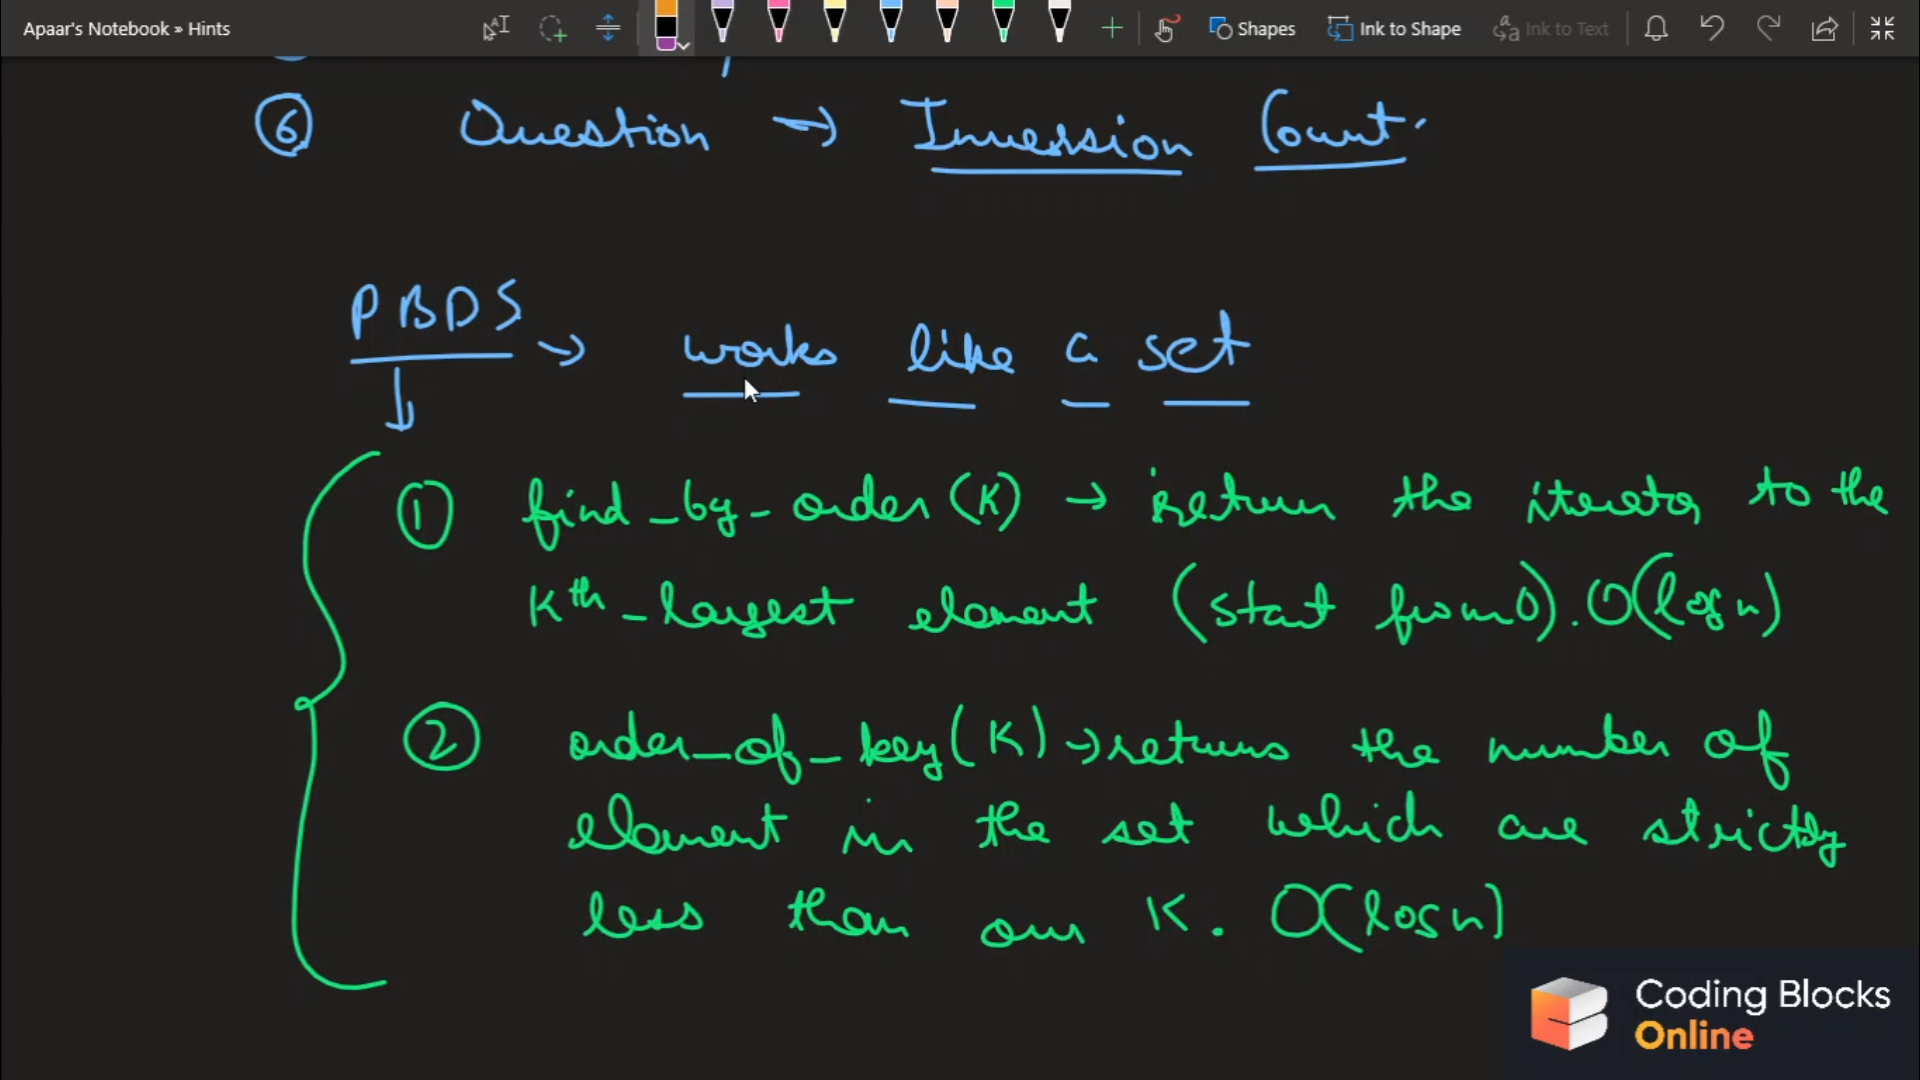 Apaar's Notebook » Hints
Shapes
Ink to Shape
Ink to Text
6 Question → Inversion Count.
PBDS → works like a set
1 find_by_order(K) → return the iterator to the
Kth-largest element (start from 0). O(log n)
2 order_of_key(K) → returns the number of
element in the set which are strictly
less than our K. O(log n)
Coding Blocks
Online